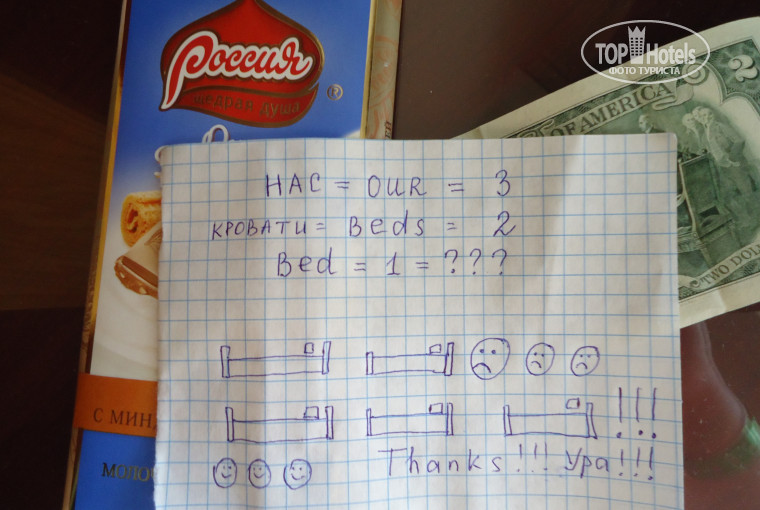 Россия
®
щедрая душа
TOPHotels
ФОТО ТУРИСТА
OF AMERICA
2
TWO DOL
НАС = OUR = 3
КРОВАТИ = Beds = 2
Bed = 1 = ???
!!!
Thanks!!! Ура!!!
С МИН
МОЛО